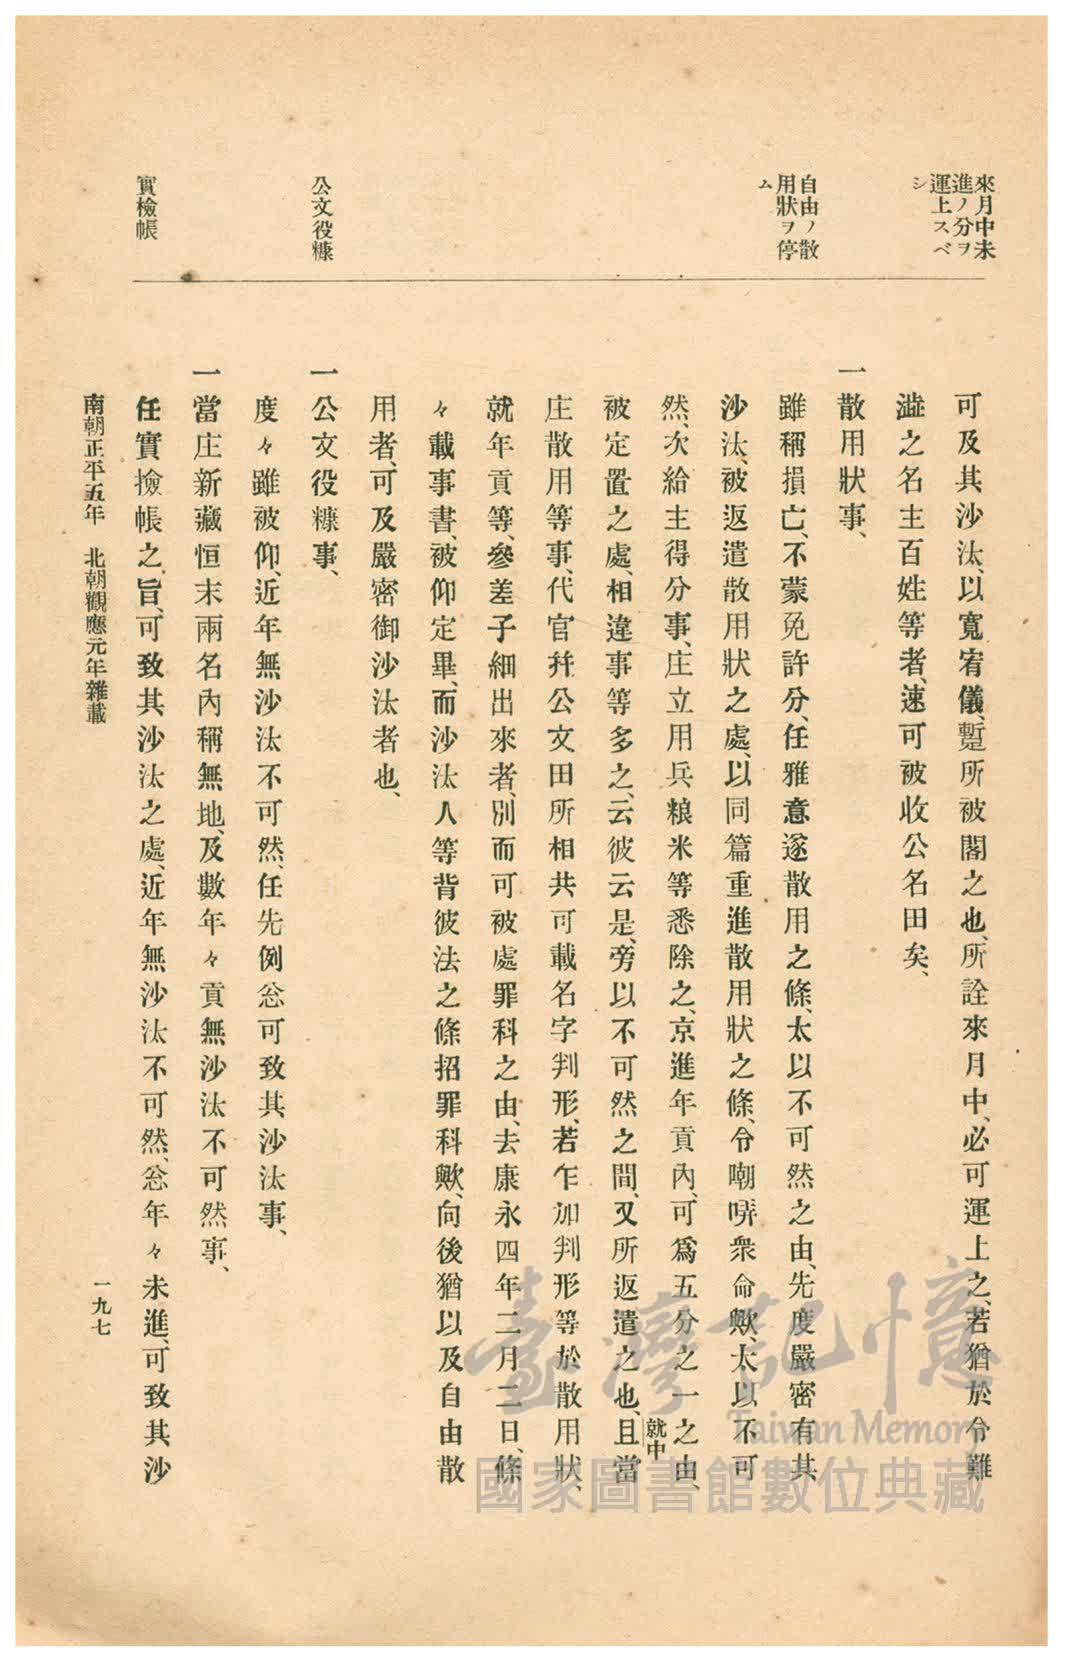 來月中未
進ノ分ヲ
運上スベ
シ
自由ノ散
用狀ヲ停
ム
公文役糠
實檢帳
可及其沙汰、以寬宥儀、蹔所被閣之也、所詮來月中、必可運上之、若猶於令難
澁之名主百姓等者、速可被收公名田矣、
一散用狀事、
雖稱損亡、不蒙免許分、任雅意遂散用之條、太以不可然之由、先度嚴密有其
沙汰、被返遣散用狀之處、以同篇重進散用狀之條、令嘲哢衆命歟、太以不可
然、次給主得分事、庄立用兵粮米等悉除之、京進年貢內、可爲五分之一之由、
就中
被定置之處、相違事等多之、云彼云是、旁以不可然之間、又所返遣之也、且當
庄散用等事、代官幷公文田所相共可載名字判形、若乍加判形等於散用狀、
就年貢等、參差子細出來者、別而可被處罪科之由、去康永四年二月二日、條
々載事書、被仰定畢、而沙汰人等背彼法之條招罪科歟、向後猶以及自由散
用者、可及嚴密御沙汰者也、
一公文役糠事、
度々雖被仰、近年無沙汰不可然、任先例忩可致其沙汰事、
一當庄新藏恒末兩名內稱無地、及數年々貢無沙汰不可然事、
任實撿帳之旨、可致其沙汰之處、近年無沙汰不可然、忩年々未進、可致其沙
南朝正平五年　北朝觀應元年雜載
一九七
臺灣記憶
Taiwan Memory
國家圖書館數位典藏